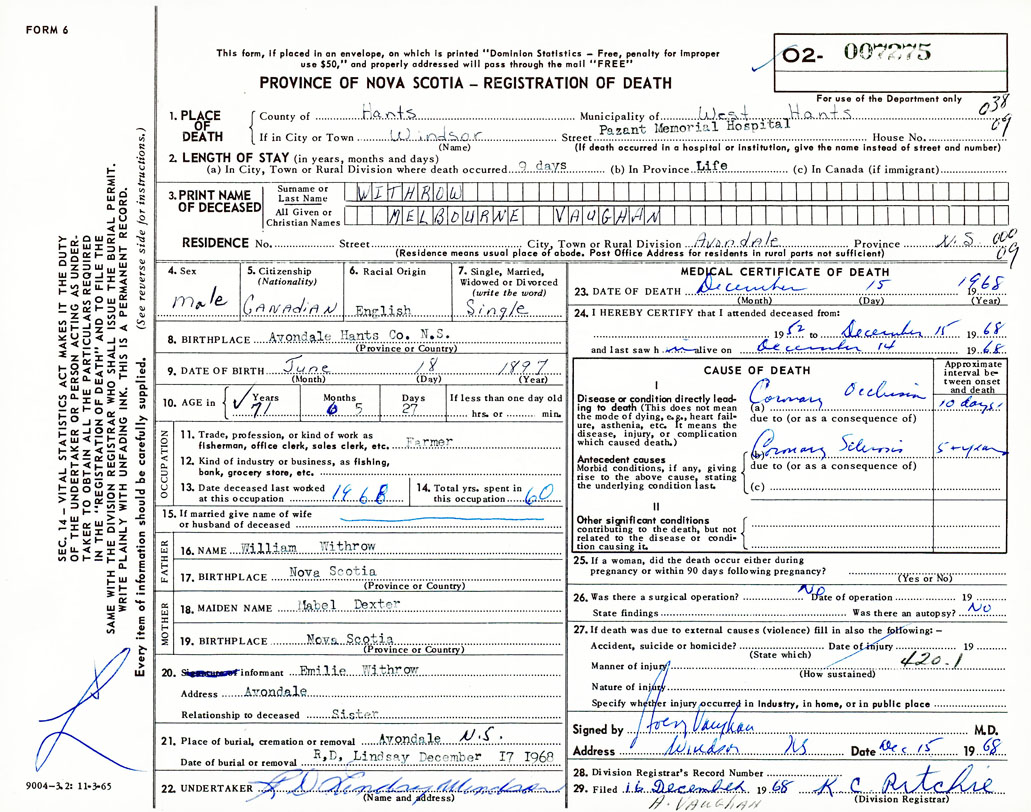 FORM 6
This form, if placed in an envelope, on which is printed "Dominion Statistics – Free, penalty for improper
use $50," and properly addressed will pass through the mail "FREE"
O2- 007275
PROVINCE OF NOVA SCOTIA – REGISTRATION OF DEATH
For use of the Department only
038
09
1. PLACE OF DEATH
County of Hants Municipality of West Hants
If in City or Town Windsor Street Pazant Memorial Hospital House No.
(Name) (If death occurred in a hospital or institution, give the name instead of street and number)
2. LENGTH OF STAY (in years, months and days)
(a) In City, Town or Rural Division where death occurred 9 days (b) In Province Life (c) In Canada (if immigrant)
3. PRINT NAME OF DECEASED
Surname or Last Name WITHROW
All Given or Christian Names MELBOURNE VAUGHAN
RESIDENCE No. Street City, Town or Rural Division Avondale Province N.S 000
09
(Residence means usual place of abode. Post Office Address for residents in rural parts not sufficient)
4. Sex
male
5. Citizenship
(Nationality)
CANADIAN
6. Racial Origin
English
7. Single, Married,
Widowed or Divorced
(write the word)
Single
8. BIRTHPLACE Avondale Hants Co. N.S.
(Province or Country)
9. DATE OF BIRTH June 18 1897
(Month) (Day) (Year)
10. AGE in Years Months Days If less than one day old
71 6 5 27 hrs. or min.
OCCUPATION
11. Trade, profession, or kind of work as
fisherman, office clerk, sales clerk, etc. Farmer
12. Kind of industry or business, as fishing,
bank, grocery store, etc.
13. Date deceased last worked
at this occupation 1968
14. Total yrs. spent in
this occupation 60
15. If married give name of wife
or husband of deceased
FATHER
16. NAME William Withrow
17. BIRTHPLACE Nova Scotia
(Province or Country)
MOTHER
18. MAIDEN NAME Mabel Dexter
19. BIRTHPLACE Nova Scotia
(Province or Country)
20. informant Emilie Withrow
Address Avondale
Relationship to deceased Sister
21. Place of burial, cremation or removal Avondale N.S.
Date of burial or removal R,D, Lindsay December 17 1968
22. UNDERTAKER R D Lindsay Windsor
(Name and address)
MEDICAL CERTIFICATE OF DEATH
23. DATE OF DEATH December 15 1968
(Month) (Day) (Year)
24. I HEREBY CERTIFY that I attended deceased from:
1952 to December 15 1968
and last saw h im alive on December 14 1968
CAUSE OF DEATH
Approximate
interval be-
tween onset
and death
I
Disease or condition directly lead-
ing to death (This does not mean
the mode of dying, e.g., heart fail-
ure, asthenia, etc. It means the
disease, injury, or complication
which caused death.)
(a) Coronary Occlusion 10 days
due to (or as a consequence of)
Antecedent causes
Morbid conditions, if any, giving
rise to the above cause, stating
the underlying condition last.
(b) Coronary Sclerosis 5 years
due to (or as a consequence of)
(c)
II
Other significant conditions
contributing to the death, but not
related to the disease or condi-
tion causing it.
25. If a woman, did the death occur either during
pregnancy or within 90 days following pregnancy?
(Yes or No)
26. Was there a surgical operation? No Date of operation 19
State findings Was there an autopsy? No
27. If death was due to external causes (violence) fill in also the following: –
Accident, suicide or homicide? Date of injury 19
(State which)
Manner of injury 420.1
(How sustained)
Nature of injury
Specify whether injury occurred in Industry, in home, or in public place
Signed by Vaughan M.D.
Address Windsor NS Date Dec 15 1968
28. Division Registrar's Record Number
29. Filed 16 December 1968 K C Ritchie
H. VAUGHAN (Division Registrar)
SEC. 14 – VITAL STATISTICS ACT MAKES IT THE DUTY
OF THE UNDERTAKER OR PERSON ACTING AS UNDER-
TAKER TO OBTAIN ALL THE PARTICULARS REQUIRED
IN THE "REGISTRATION OF DEATH" AND TO FILE THE
SAME WITH THE DIVISION REGISTRAR WHO SHALL ISSUE THE BURIAL PERMIT.
WRITE PLAINLY WITH UNFADING INK. THIS IS A PERMANENT RECORD.
Every item of information should be carefully supplied. (See reverse side for instructions.)
9004-3.2: 11-3-65